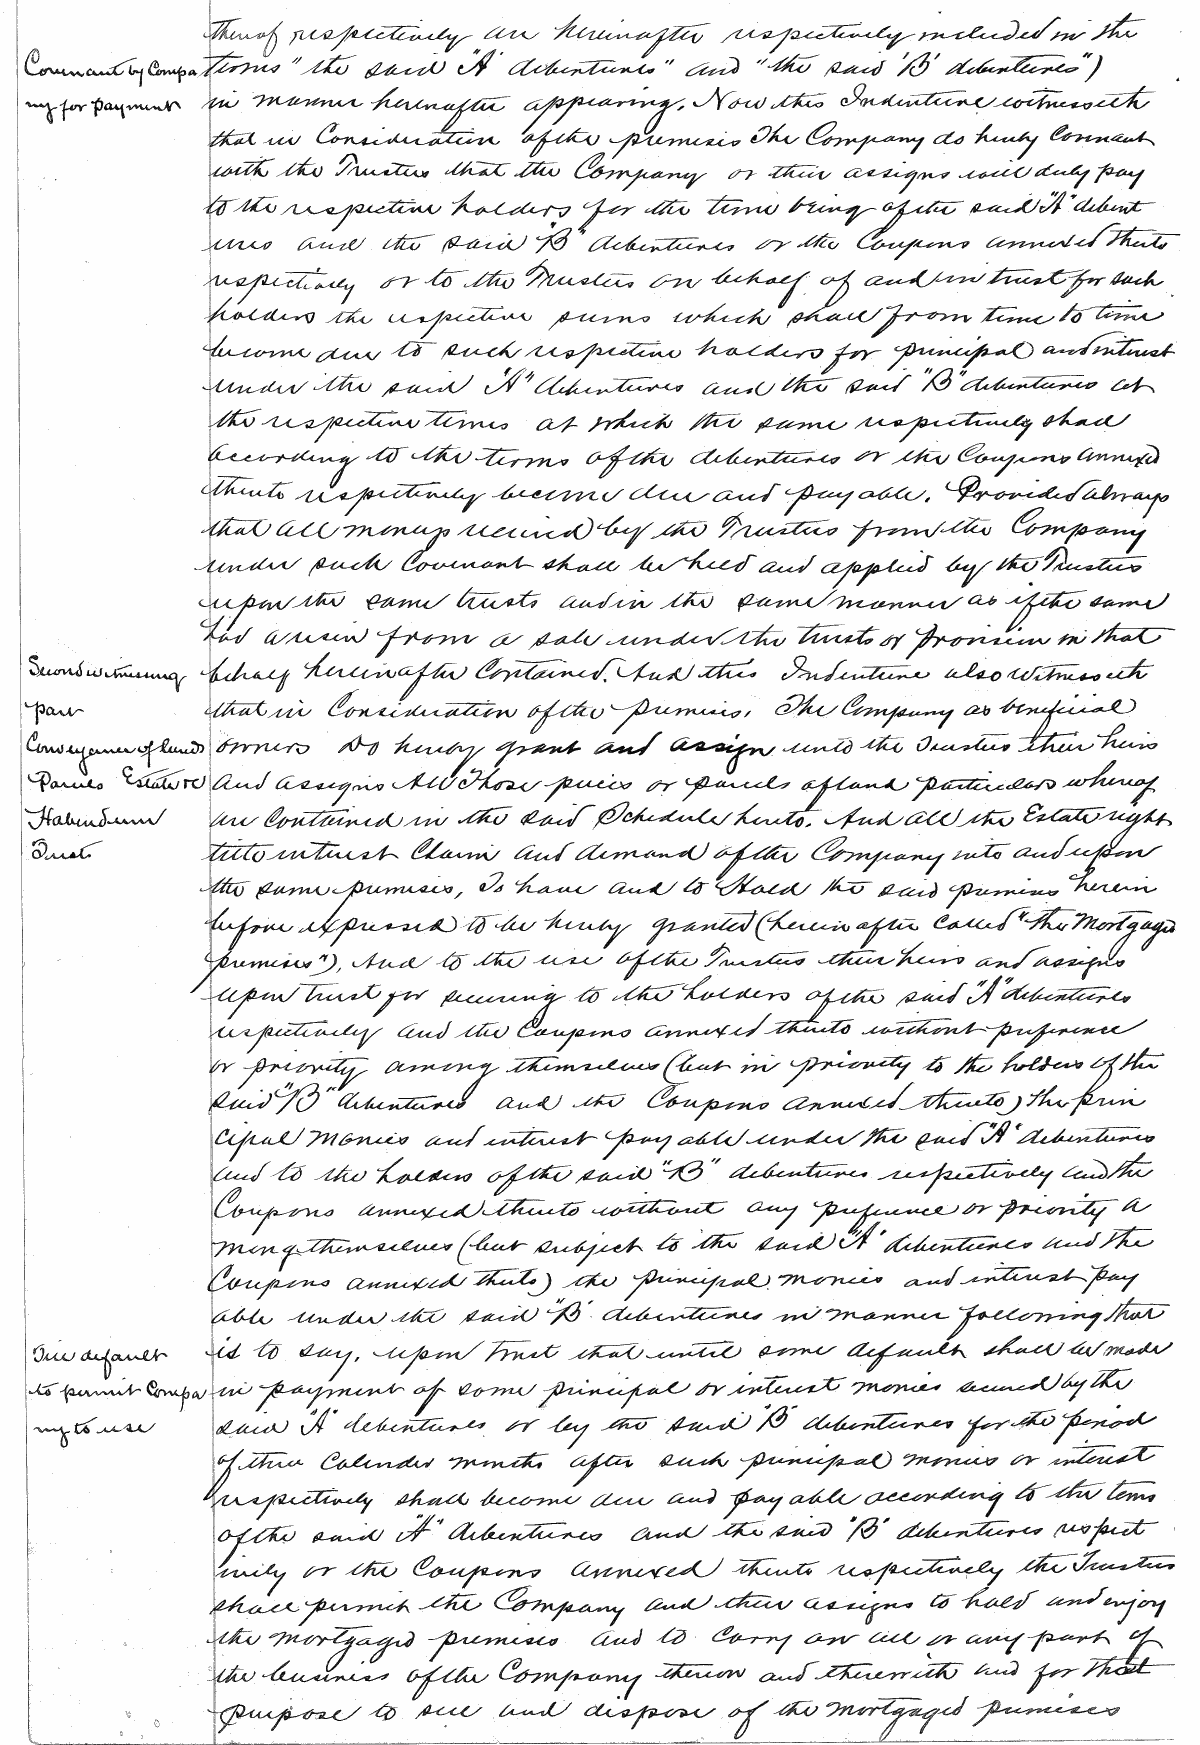 thereof respectively are hereinafter respectively included in the
Covenant by Compa
terms "the said "A" debentures" and "the said 'B' debentures")
ny for payment
in manner hereinafter appearing. Now this Indenture witnesseth
that in Consideration of the premises The Company do hereby Covenant
with the Trustees that the Company or their assigns will duly pay
to the respective holders for the time being of the said "A" debent
ures and the said "B" debentures or the Coupons annexed thereto
respectively or to the Trustees on behalf of and in trust for such
holders the respective sums which shall from time to time
become due to such respective holders for principal and interest
under the said "A" debentures and the said "B" debentures at
the respective times at which the same respectively shall
according to the terms of the debentures or the Coupons annexed
thereto respectively become due and payable. Provided always
that all moneys received by the Trustees from the Company
under such Covenant shall be held and applied by the Trustees
upon the same trusts and in the same manner as if the same
had arisen from a sale under the trusts or provision in that
Second witnessing
behalf hereinafter Contained. And this Indenture also Witnesseth
part
that in Consideration of the premises. The Company as beneficial
Conveyance of lands
owners Do hereby grant and assign unto the Trustees their heirs
Parcels Estate &c
and assigns All Those pieces or parcels of land particulars whereof
Habendum
are Contained in the said Schedule hereto. And all the Estate right
Trust
title interest Claim and demand of the Company into and upon
the same premises, To have and to Hold the said premises herein
before expressed to be hereby granted (herein after called "the Mortgaged
premises"), And to the use of the Trustees their heirs and assigns
upon trust for securing to the holders of the said "A" debentures
respectively and the Coupons annexed thereto without preference
or priority among themselves (but in priority to the holders of the
said "B" debentures and the Coupons annexed thereto) the prin
cipal monies and interest payable under the said "A" debentures
and to the holders of the said "B" debentures respectively and the
Coupons annexed thereto without any preference or priority a
mong themselves (but subject to the said "A" debentures and the
Coupons annexed thereto) the principal monies and interest pay
able under the said "B" debentures in manner following that
Till default
is to say, upon trust that until some default shall be made
to permit Compa
in payment of some principal or interest monies secured by the
ny to use
said "A" debentures or by the said "B" debentures for the period
of three Calender months after such principal monies or interest
respectively shall become due and payable according to the terms
of the said "A" debentures and the said "B" debentures respect
ively or the Coupons annexed thereto respectively the Trustees
shall permit the Company and their assigns to hold and enjoy
the mortgaged premises and to carry on all or any part of
the business of the Company thereon and therewith and for that
purpose to use and dispose of the mortgaged premises